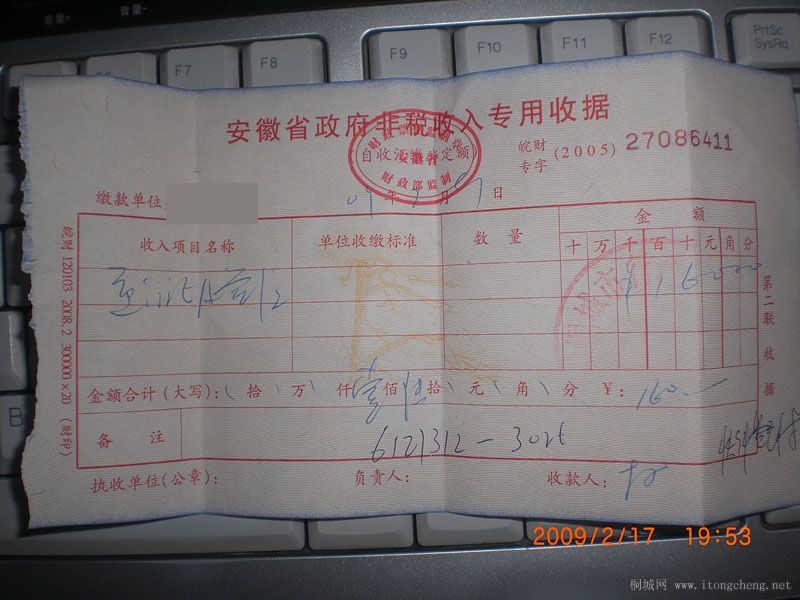 音量- 音量-
F7 F8 F9 F10 F11 F12 PrtSc
SysRq
安徽省政府非税收入专用收据
自收汇缴非定额
安徽省
财政部监制
皖财 (2005) 27086411
专字
缴款单位:
年 月 日
收入项目名称 单位收缴标准 数量 金额
十 万 千 百 十 元 角 分
¥ 1 6 0 0 0
金额合计(大写): 拾 万 仟 壹 佰 陆 拾 元 角 分 ¥: 160.—
备注
执收单位(公章): 负责人: 收款人:
皖财 120103 2008.2 300000×20 (财印)
第二联 收据
B
2009/2/17 19:53
桐城网 www.itongcheng.net